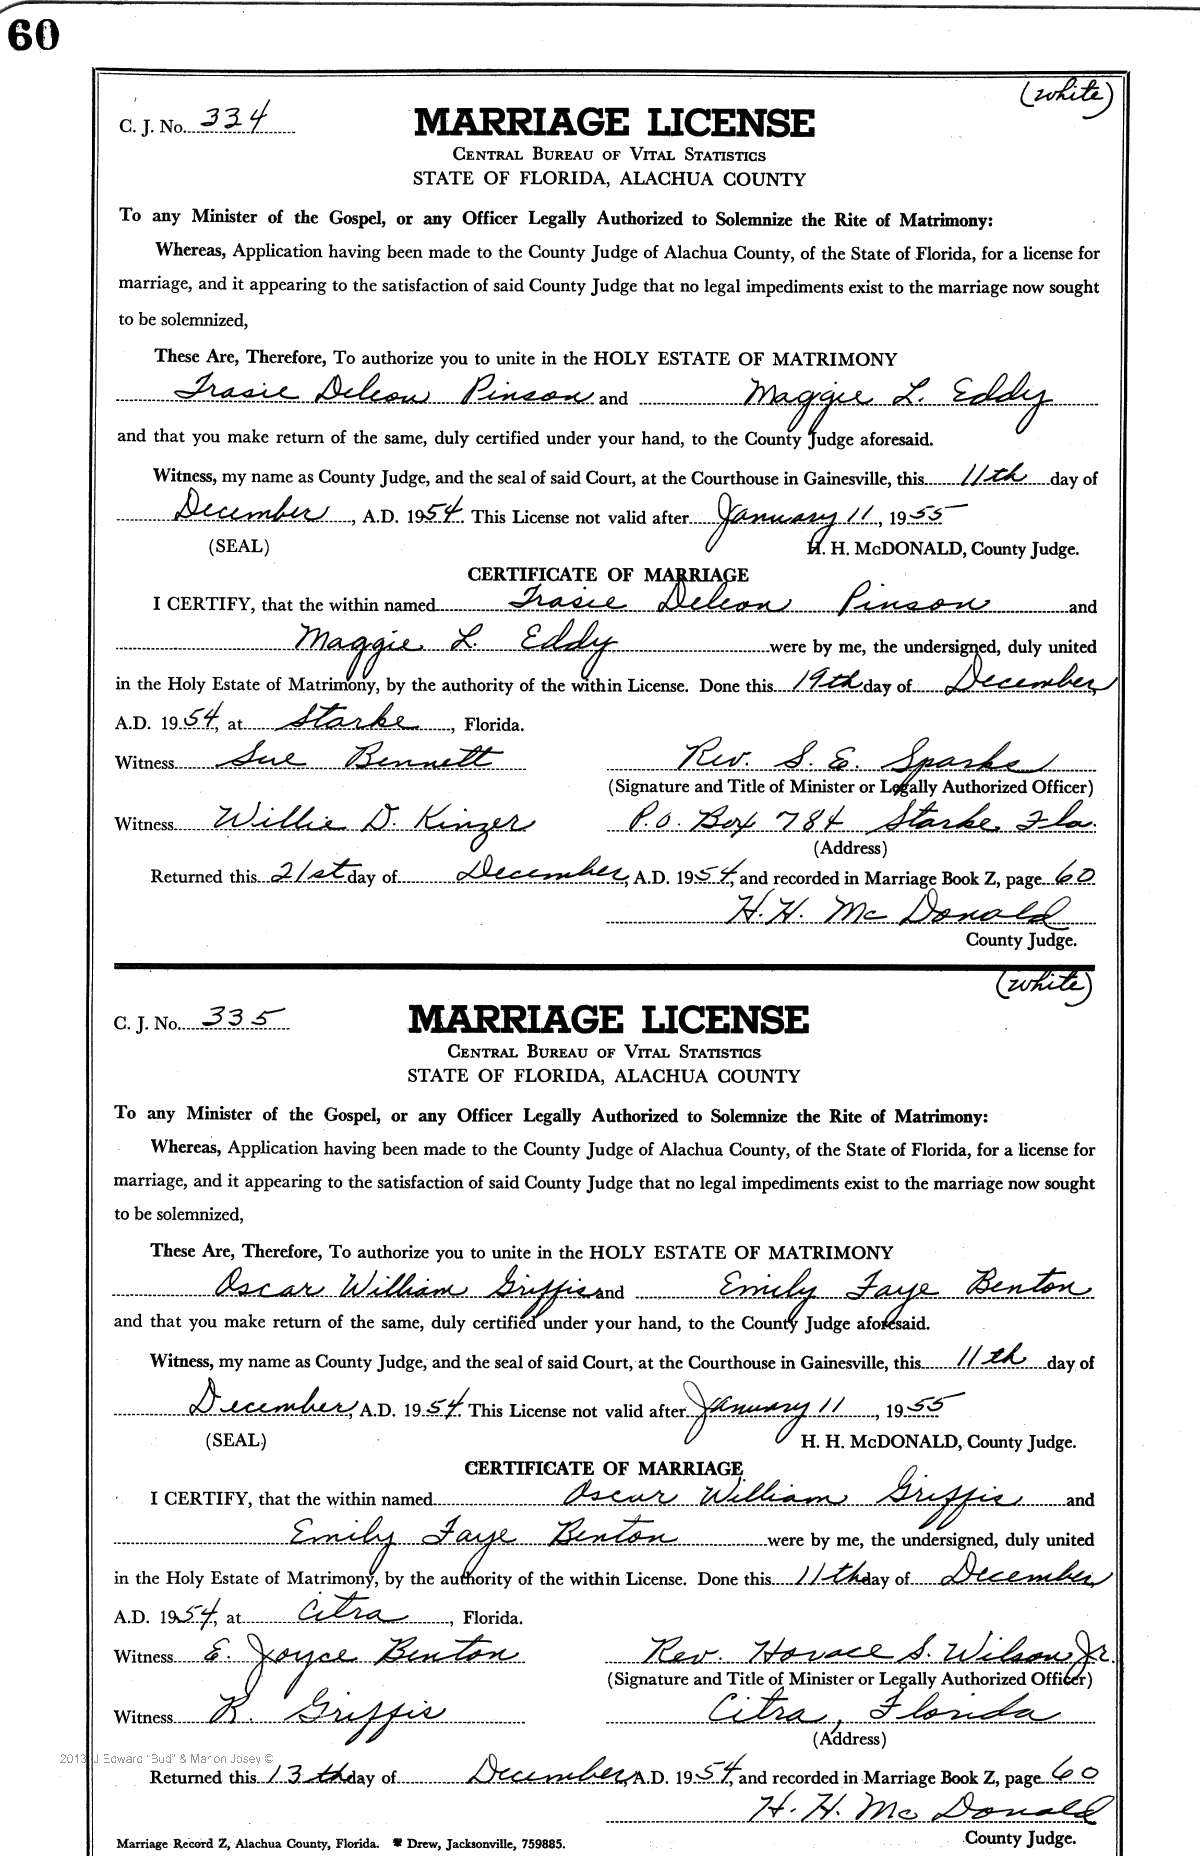 60
(white)
C. J. No. 334
MARRIAGE LICENSE
CENTRAL BUREAU OF VITAL STATISTICS
STATE OF FLORIDA, ALACHUA COUNTY
To any Minister of the Gospel, or any Officer Legally Authorized to Solemnize the Rite of Matrimony:
Whereas, Application having been made to the County Judge of Alachua County, of the State of Florida, for a license for
marriage, and it appearing to the satisfaction of said County Judge that no legal impediments exist to the marriage now sought
to be solemnized,
These Are, Therefore, To authorize you to unite in the HOLY ESTATE OF MATRIMONY
Trasie Deleon Pinson and Maggie L. Eddy
and that you make return of the same, duly certified under your hand, to the County Judge aforesaid.
Witness, my name as County Judge, and the seal of said Court, at the Courthouse in Gainesville, this 11th day of
December, A.D. 1954. This License not valid after January 11, 1955
(SEAL) H. H. McDONALD, County Judge.
CERTIFICATE OF MARRIAGE
I CERTIFY, that the within named Trasie Deleon Pinson and
Maggie L. Eddy were by me, the undersigned, duly united
in the Holy Estate of Matrimony, by the authority of the within License. Done this 19th day of December,
A.D. 1954, at Starke, Florida.
Witness Sue Bennett Rev. S. E. Sparks
(Signature and Title of Minister or Legally Authorized Officer)
Witness Willie D. Kinzer P.O. Box 784 Starke, Fla.
(Address)
Returned this 21st day of December, A.D. 1954, and recorded in Marriage Book Z, page 60
H. H. McDonald
County Judge.
(white)
C. J. No. 335
MARRIAGE LICENSE
CENTRAL BUREAU OF VITAL STATISTICS
STATE OF FLORIDA, ALACHUA COUNTY
To any Minister of the Gospel, or any Officer Legally Authorized to Solemnize the Rite of Matrimony:
Whereas, Application having been made to the County Judge of Alachua County, of the State of Florida, for a license for
marriage, and it appearing to the satisfaction of said County Judge that no legal impediments exist to the marriage now sought
to be solemnized,
These Are, Therefore, To authorize you to unite in the HOLY ESTATE OF MATRIMONY
Oscar William Griffis and Emily Faye Benton
and that you make return of the same, duly certified under your hand, to the County Judge aforesaid.
Witness, my name as County Judge, and the seal of said Court, at the Courthouse in Gainesville, this 11th day of
December, A.D. 1954. This License not valid after January 11, 1955
(SEAL) H. H. McDONALD, County Judge.
CERTIFICATE OF MARRIAGE
I CERTIFY, that the within named Oscar William Griffis and
Emily Faye Benton were by me, the undersigned, duly united
in the Holy Estate of Matrimony, by the authority of the within License. Done this 11th day of December,
A.D. 1954, at Citra, Florida.
Witness E. Joyce Benton Rev. Horace S. Wilson Jr.
(Signature and Title of Minister or Legally Authorized Officer)
Witness R. Griffis Citra, Florida
(Address)
2013 J Edward "Bud" & Marion Josey ©
Returned this 13th day of December, A.D. 1954, and recorded in Marriage Book Z, page 60
H. H. McDonald
County Judge.
Marriage Record Z, Alachua County, Florida. Drew, Jacksonville, 759885.